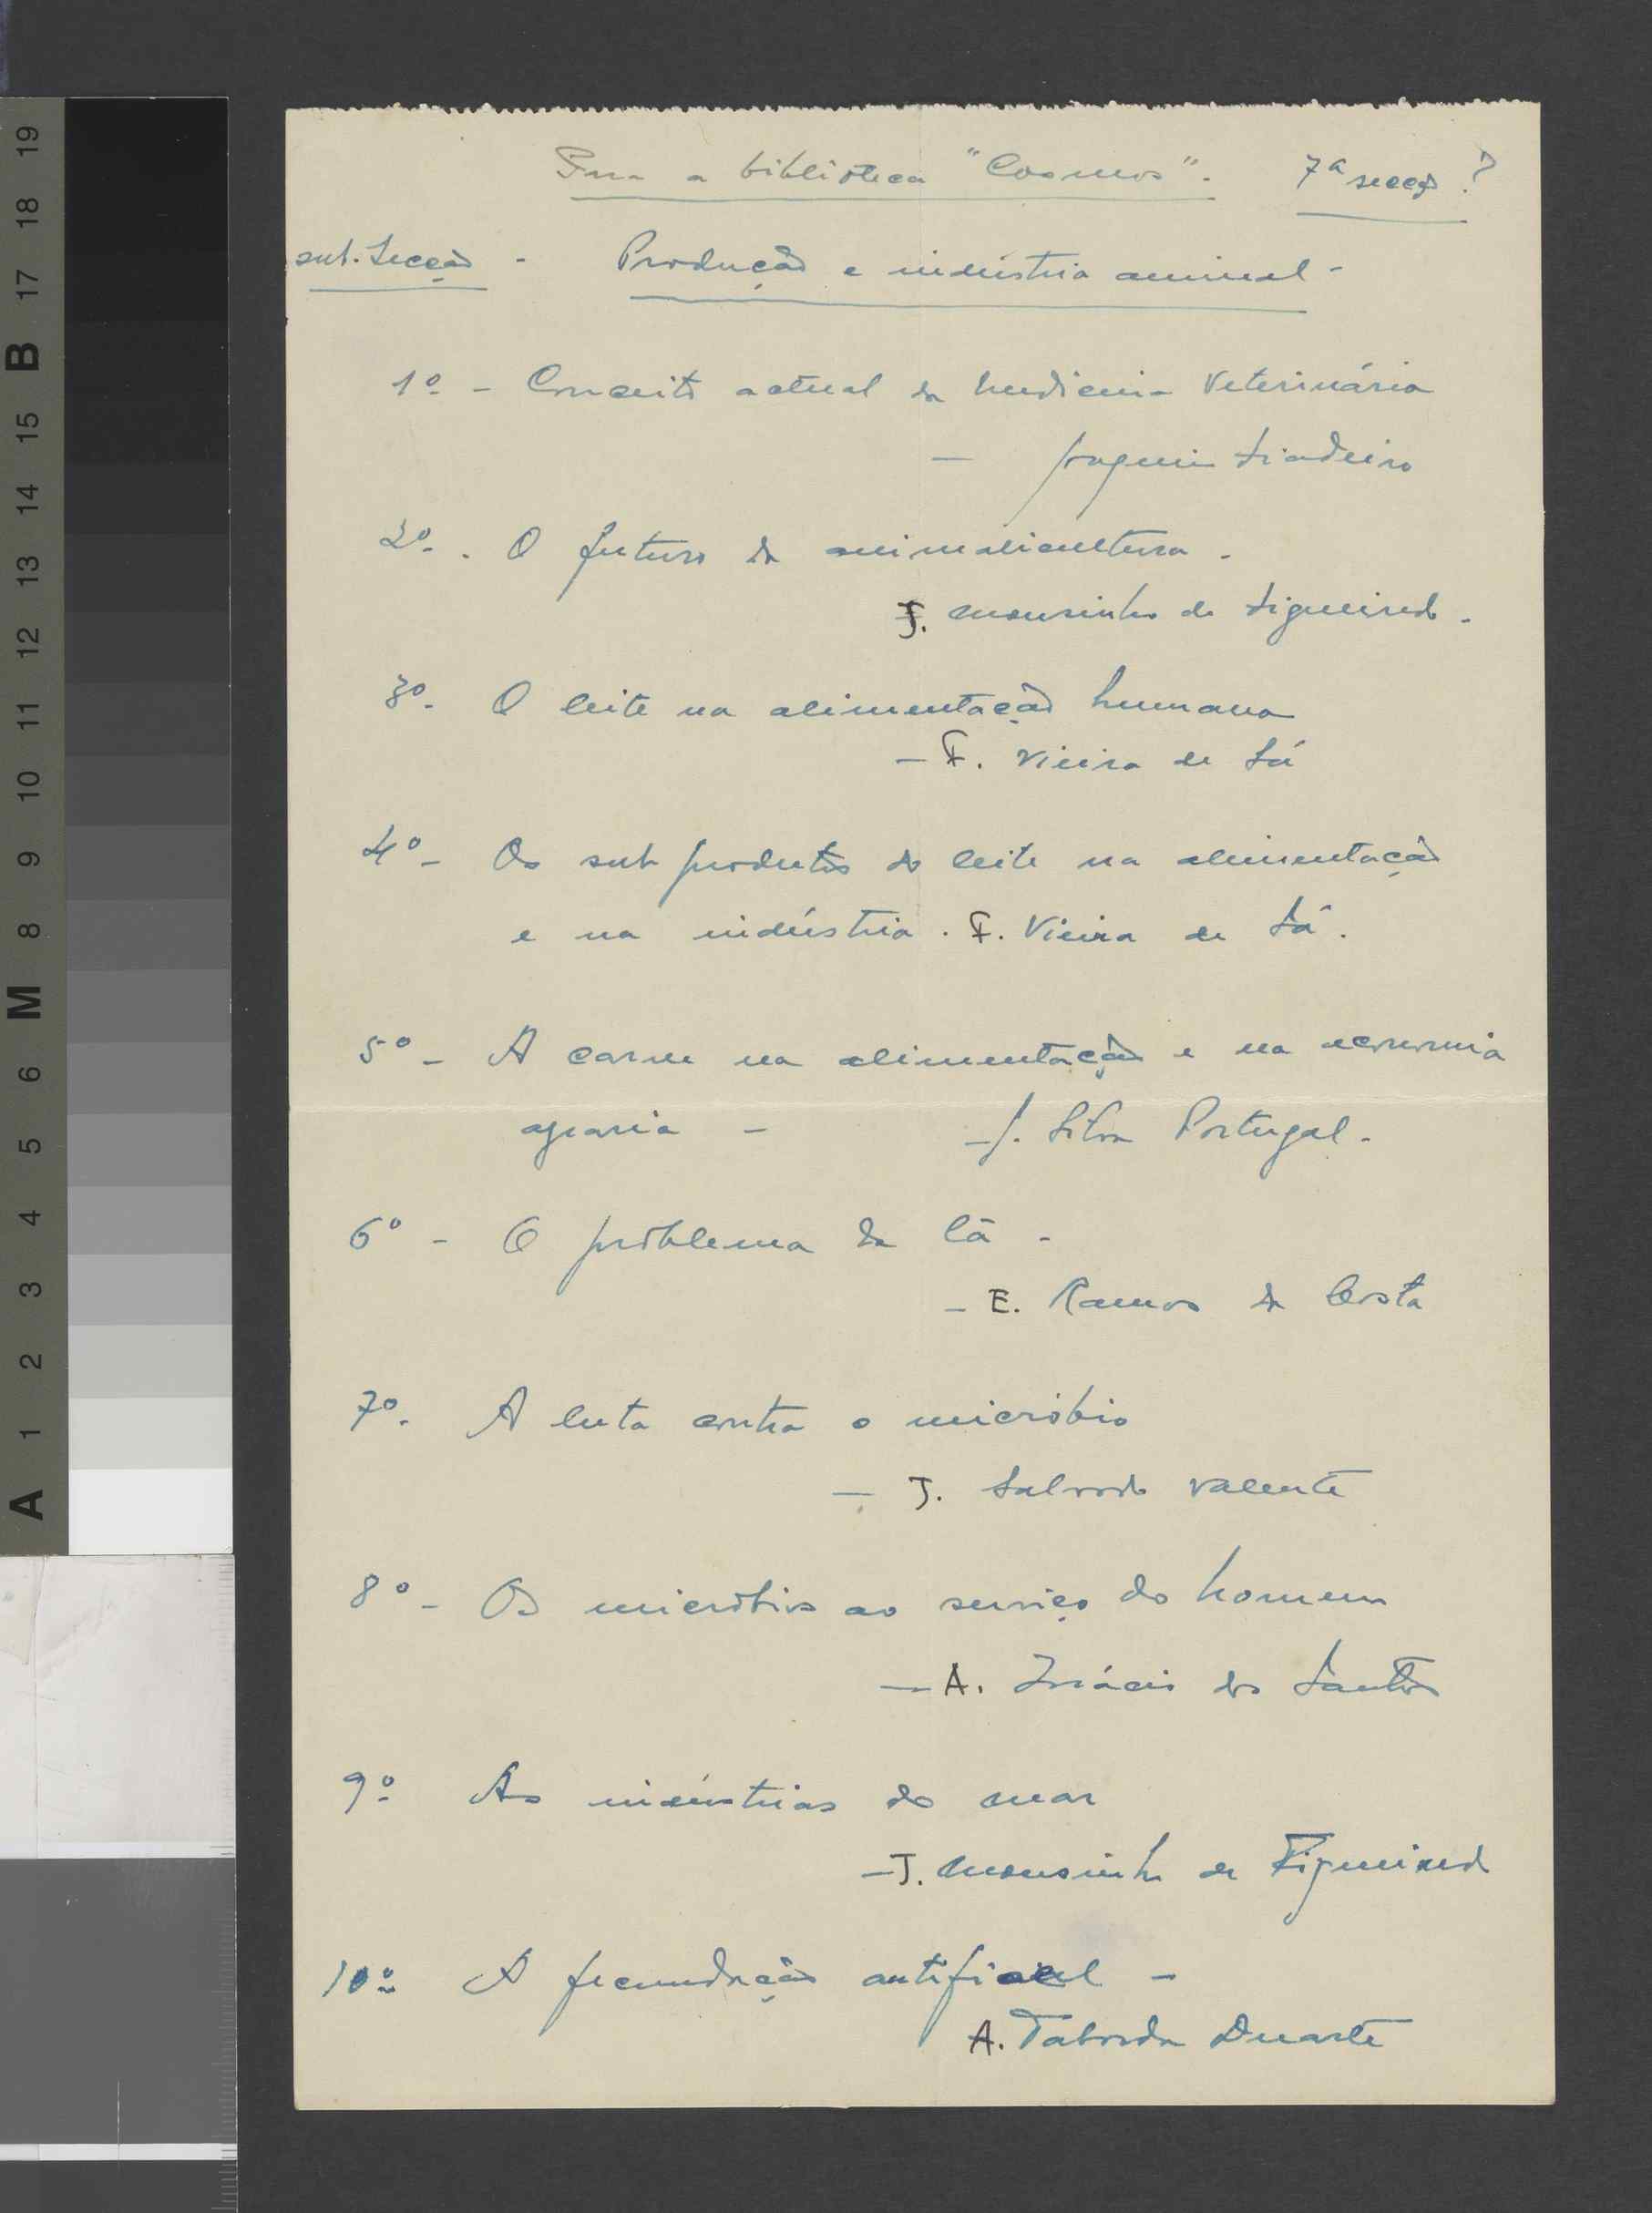 Para a biblioteca "Cosmos". 7ª secção?
sub-Secção - Produção e indústria animal -
1º - Conceito actual da medicina Veterinária
— Joaquim Fiadeiro
2º - O futuro da animalicultura -
J. Mousinho de Figueiredo -
3º - O leite na alimentação humana
— F. Vieira de Sá
4º - Os sub produtos do leite na alimentação
e na indústria. F. Vieira de Sá.
5º - A carne na alimentação e na economia
agraria - — J. Silva Portugal -
6º - O problema da lã -
- E. Ramos da Costa
7º - A luta contra o micróbio
— J. Salvado Valente
8º - Os micróbios ao serviço do homem
— A. Inácio dos Santos
9º As indústrias do mar
— J. Mousinho de Figueiredo
10º A fecundação artificial -
A. Taborda Duarte
A 1 2 3 4 5 6 M 8 9 10 11 12 13 14 15 B 17 18 19